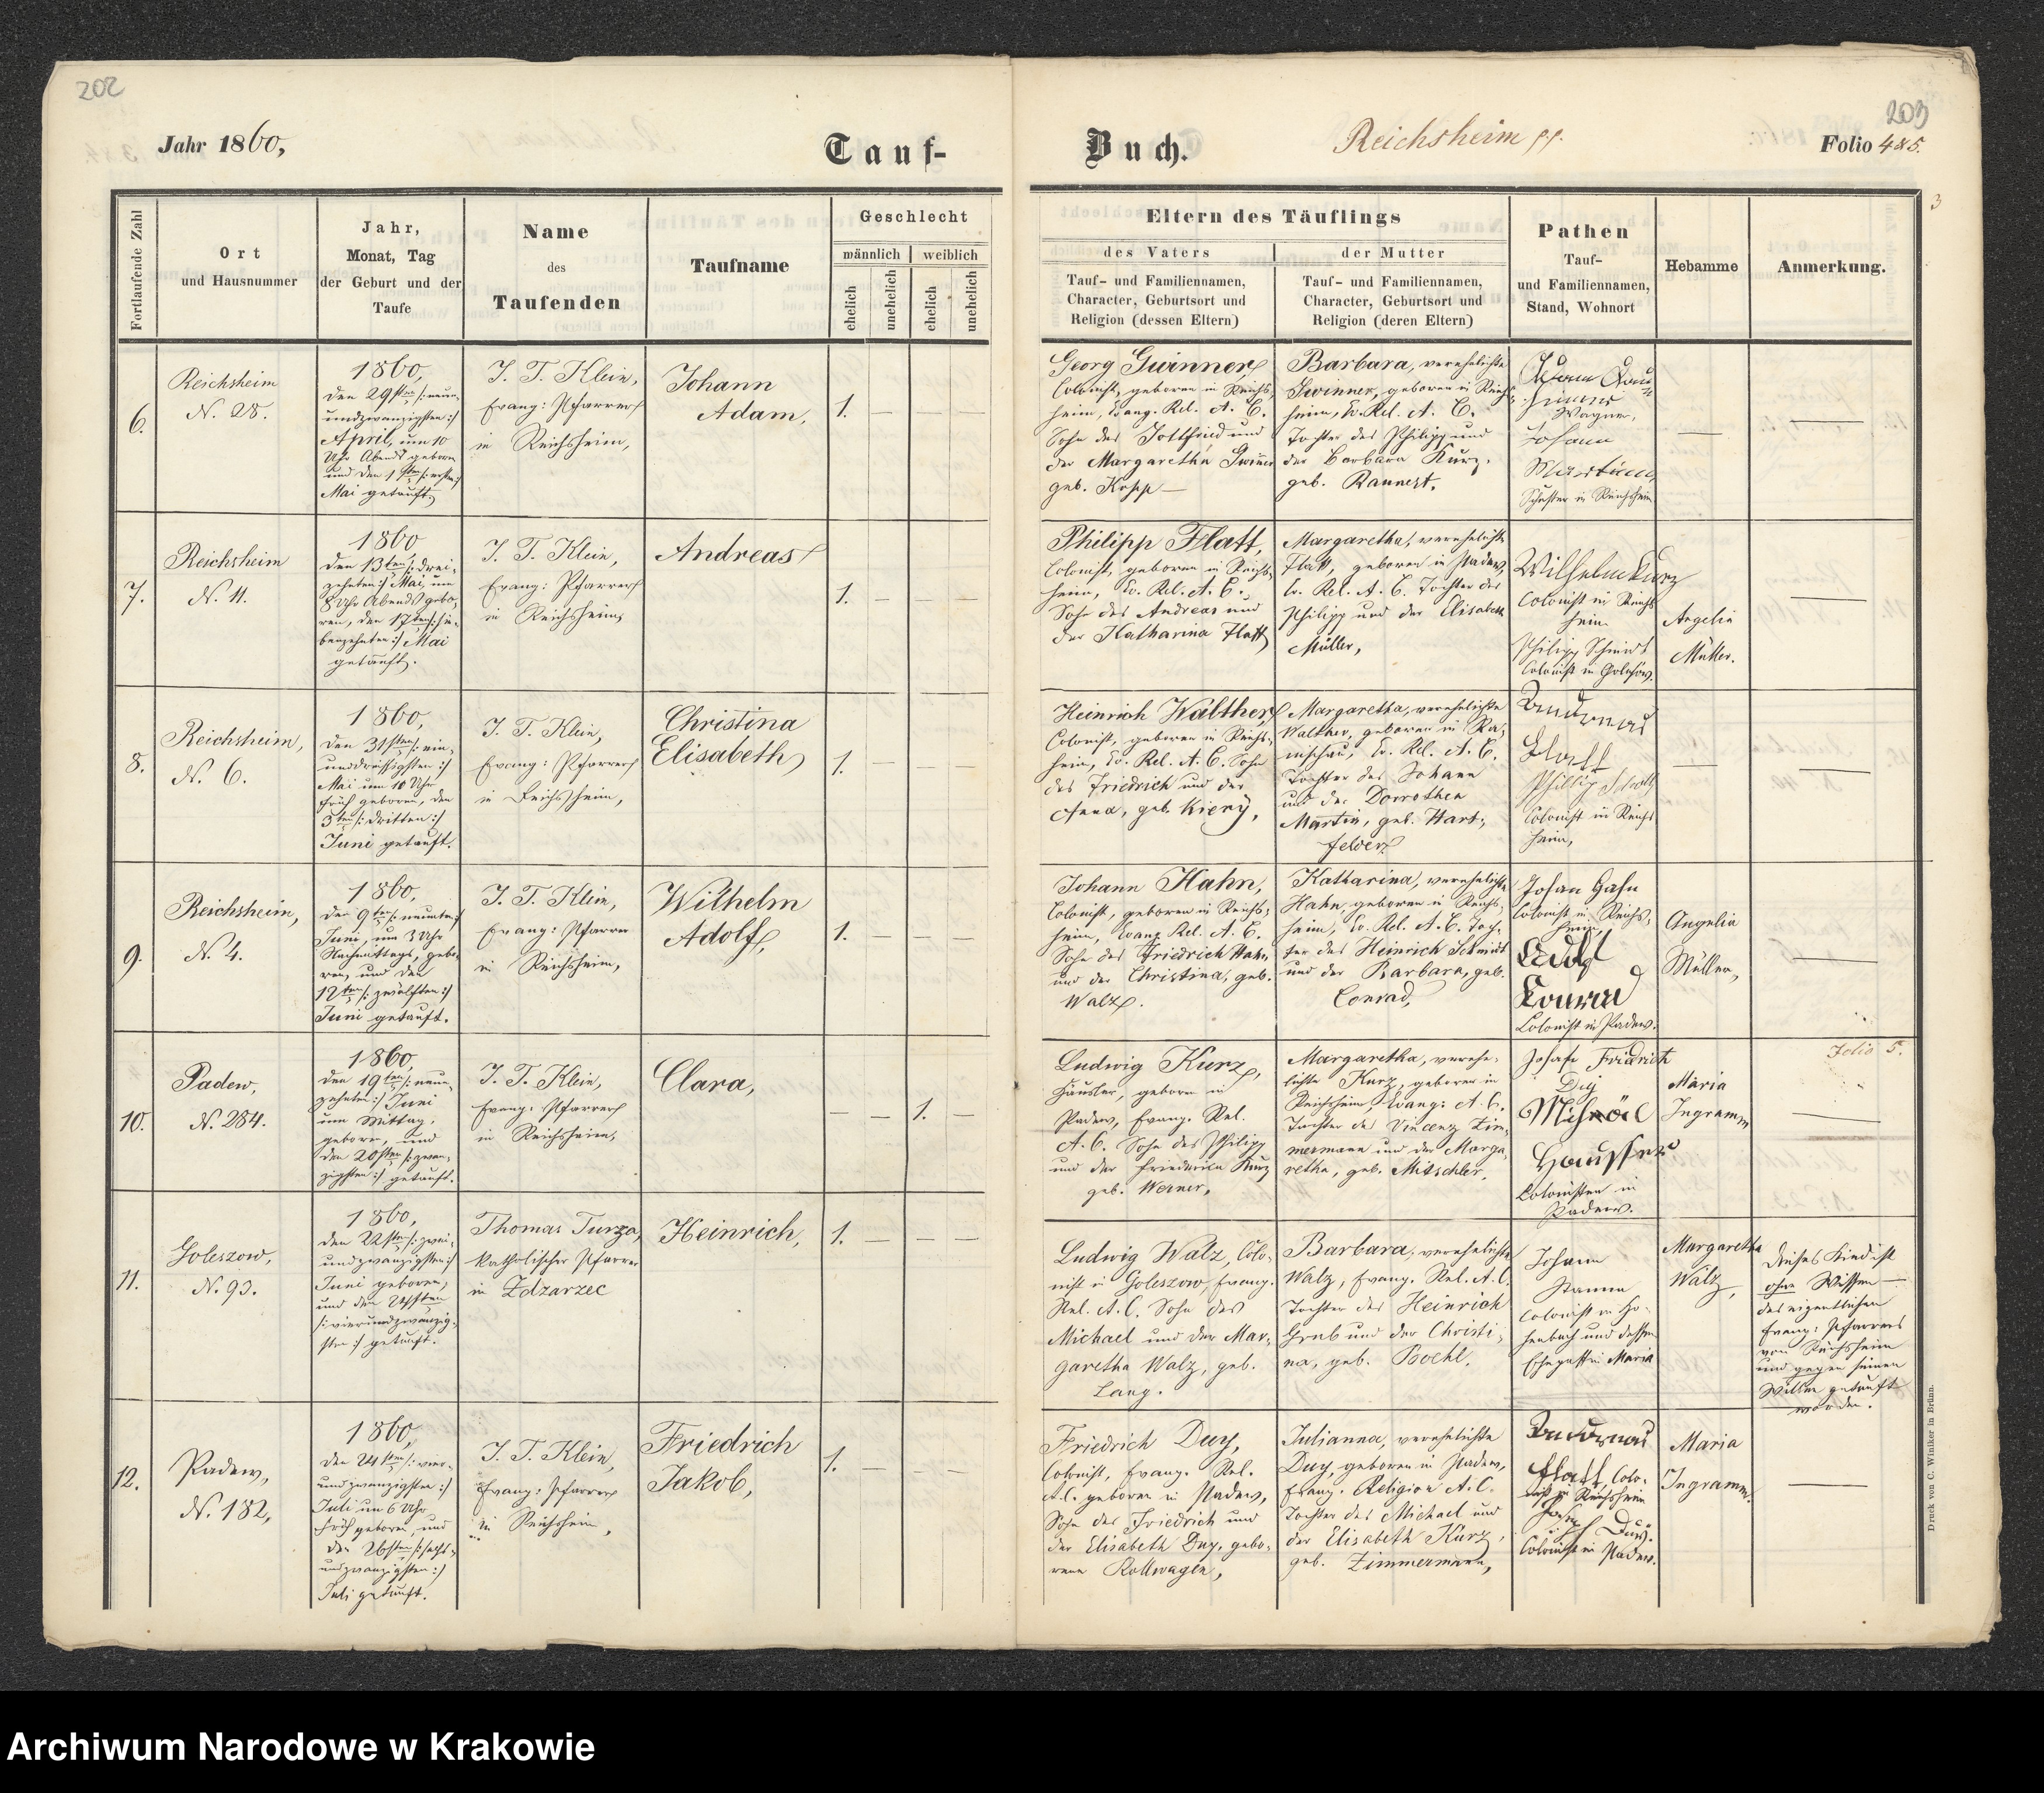 202
203
Jahr 1860,
Tauf-
Buch.
Reichsheim pp.
Folio 4&5.
3
Fortlaufende Zahl
Ort
und Hausnummer
Jahr,
Monat, Tag
der Geburt und der
Taufe
Name
des
Taufenden
Taufname
Geschlecht
männlich
weiblich
ehelich
unehelich
ehelich
unehelich
Eltern des Täuflings
des Vaters
Tauf- und Familiennamen,
Character, Geburtsort und
Religion (dessen Eltern)
der Mutter
Tauf- und Familiennamen,
Character, Geburtsort und
Religion (deren Eltern)
Pathen
Tauf-
und Familiennamen,
Stand, Wohnort
Hebamme
Anmerkung.
6.
Reichsheim
N. 28.
1860,
den 29sten /: neun-
undzwanzigsten :/
April, um 10
Uhr Abends geboren
und den 1sten /: ersten :/
Mai getauft.
J. T. Klein,
Evang: Pfarrer
in Reichsheim,
Johann
Adam,
1. — — —
Georg Gwinner,
Colonist, geboren in Reichs-
heim, Evang. Rel. A. C.
Sohn des Gottfried und
der Margaretha Gwinner
geb. Kopp —
Barbara, verehelichte
Gwinner, geboren in Reichs-
heim, Ev. Rel. A. C.
Tochter des Philipp und
der Barbara Kurz,
geb. Rannert.
Wagner,
Johann
Schuster in Reichsheim
—
—
7.
Reichsheim
N. 11.
1860
den 13ten /: drei-
zehnten :/ Mai, um
8 Uhr Abends gebo-
ren, den 17ten /: sie-
benzehnten :/ Mai
getauft.
J. T. Klein,
Evang: Pfarrer
in Reichsheim,
Andreas
1. — — —
Philipp Flatt,
Colonist, geboren in Reichs-
heim, Ev. Rel. A. C.
Sohn des Andreas und
der Katharina Flatt
Margaretha, verehelichte
Flatt, geboren in Padew,
Ev. Rel. A. C. Tochter des
Philipp und der Elisabeth
Müller,
Wilhelm Kurz
Colonist in Reichs-
heim
Philipp Schmidt
Colonist in Goleszow.
Angelia
Müller.
—
8.
Reichsheim,
N. 6.
1860,
den 31sten /: ein-
unddreissigsten :/
Mai um 10 Uhr
früh geboren, den
3ten /: dritten :/
Juni getauft.
J. T. Klein,
Evang: Pfarrer
in Reichsheim,
Christina
Elisabeth,
1. — — —
Heinrich Walther,
Colonist, geboren in Reichs-
heim, Ev. Rel. A. C. Sohn
des Friedrich und der
Anna, geb. Kiery,
Margaretha, verehelichte
Walther, geboren in Ra-
nischau, Ev. Rel. A. C.
Tochter des Johann
und der Dorothea
Martin, geb. Hart-
felder
Flatt
Philipp
Colonist in Reichs-
heim,
—
—
9.
Reichsheim,
N. 4.
1860,
den 9ten /: neunten :/
Juni, um 3 Uhr
Nachmittags, gebo-
ren, und den
12ten /: zwölften :/
Juni getauft.
J. T. Klein,
Evang: Pfarrer
in Reichsheim,
Wilhelm
Adolf,
1. — — —
Johann Hahn,
Colonist, geboren in Reichs-
heim, Evang. Rel. A. C.
Sohn des Friedrich Hahn
und der Christina, geb.
Walz.
Katharina, verehelichte
Hahn, geboren in Reichs-
heim, Ev. Rel. A. C. Toch-
ter des Heinrich Schmidt
und der Barbara, geb.
Conrad,
Johan Hahn
Colonist in Reichs-
heim,
Adolf
Konrad
Colonist in Padew.
Angelia
Müller,
—
10.
Padew,
N. 284.
1860,
den 19ten /: neun-
zehnten :/ Juni
um Mittag,
geboren, und
den 20sten /: zwan-
zigsten :/ getauft.
J. T. Klein,
Evang: Pfarrer
in Reichsheim,
Clara,
— — 1. —
Ludwig Kurz,
Häusler, geboren in
Padew, Evang. Rel.
A. C. Sohn des Philipp
und der Friederica Kurz
geb. Werner,
Margaretha, verehe-
lichte Kurz, geboren in
Reichsheim, Evang: A. C.
Tochter des Vincenz Zim-
mermann und der Marga-
retha, geb. Mitschler,
Friedrich
Duy
Colonisten in
Padew.
Maria
Ingramm
Folio 5.
—
11.
Goleszow,
N. 93.
1860,
den 22sten /: zwei-
undzwanzigsten :/
Juni geboren,
und den 24sten
/: vierundzwanzig-
sten :/ getauft.
Thomas Turza,
Katholischer Pfarrer
in Zdzarzec
Heinrich,
1. — — —
Ludwig Walz, Colo-
nist in Goleszow, Evang.
Rel. A. C. Sohn des
Michael und der Mar-
garetha Walz, geb.
Lang.
Barbara, verehelichte
Walz, Evang. Rel. A. C.
Tochter des Heinrich
Grub und der Christi-
na, geb. Boehl.
Johann
Stamm
Colonist in Ho-
henbach und dessen
Ehegattin Maria
Margaretha
Walz,
Dieses Kind ist
ohne Wissen —
des eigentlichen
Evang: Pfarrers
von Reichsheim
und gegen seinen
Willen getauft
worden.
12.
Padew,
N. 182,
1860,
den 24sten /: vier-
undzwanzigsten :/
Juli um 6 Uhr
früh geboren, und
den 26sten /: sechs-
undzwanzigsten :/
Juli getauft.
J. T. Klein,
Evang: Pfarrer
in Reichsheim,
Friedrich
Jakob,
1. — — —
Friedrich Duy,
Colonist, Evang. Rel.
A. C. geboren in Padew,
Sohn des Friedrich und
der Elisabeth Duy, gebo-
rene Rollwagen,
Julianna, verehelichte
Duy, geboren in Padew,
Evang. Religion A. C.
Tochter des Michael und
der Elisabeth Kurz,
geb. Zimmermann,
Flatt, Colo-
nist zu Reichsheim
Duy.
Colonist in Padew.
Maria
Ingramm.
—
Druck von C. Winiker in Brünn.
Archiwum Narodowe w Krakowie